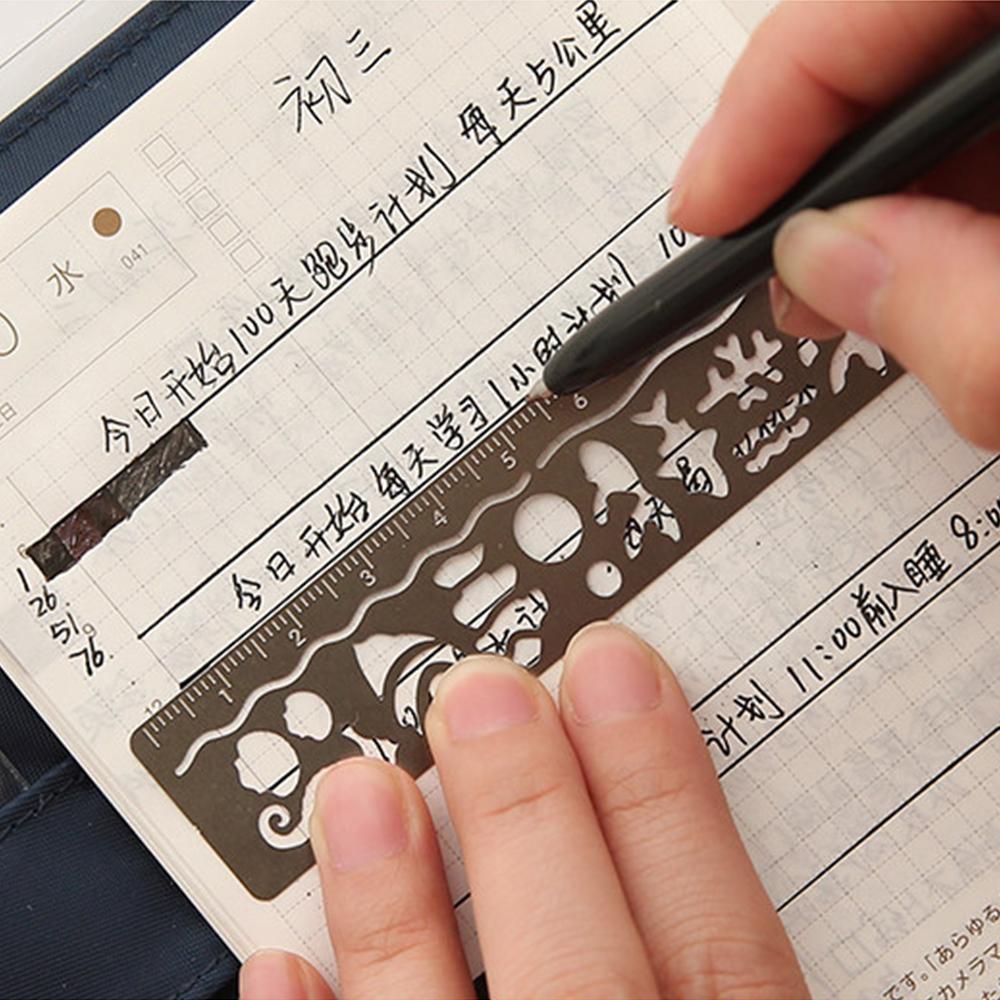 初三
水
041
日
今日开始100天跑步计划 每天5公里
今日开始每天学习1小时计划 10
1
26
51
76.
12
1 2 3 4 5 6
计划 11:00前入睡 8:0
です。「あらゆる
カメラマ